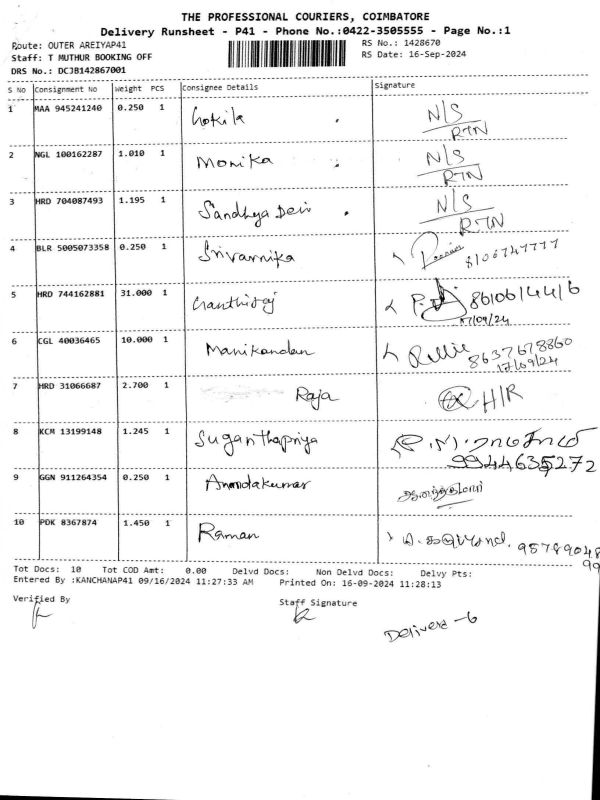 THE PROFESSIONAL COURIERS, COIMBATORE
Delivery Runsheet - P41 - Phone No.:0422-3505555 - Page No.:1
Route: OUTER AREIYAP41 RS No.: 1428670
Staff: T MUTHUR BOOKING OFF RS Date: 16-Sep-2024
DRS No.: DCJB142867001
S No Consignment No Weight PCS Consignee Details Signature
1 MAA 945241240 0.250 1 Gokila N/S
RTN
2 NGL 100162287 1.010 1 Monika N/S
RTN
3 HRD 704087493 1.195 1 Sandhya Devi N/S
RTN
4 BLR 5005073358 0.250 1 Srivarnika
8106747777
5 HRD 744162881 31.000 1
17/09/24
6 CGL 40036465 10.000 1 Manikandan
8637678860
17/09/24
7 HRD 31066687 2.700 1 Raja H/R
8 KCM 13199148 1.245 1 Suganthapriya
9944635272
9 GGN 911264354 0.250 1 Anandakumar ஆனந்தகுமார்
10 PDK 8367874 1.450 1 Raman 95789048
99
Tot Docs: 10 Tot COD Amt: 0.00 Delvd Docs: Non Delvd Docs: Delvy Pts:
Entered By :KANCHANAP41 09/16/2024 11:27:33 AM Printed On: 16-09-2024 11:28:13
Verified By Staff Signature
Delivera -6